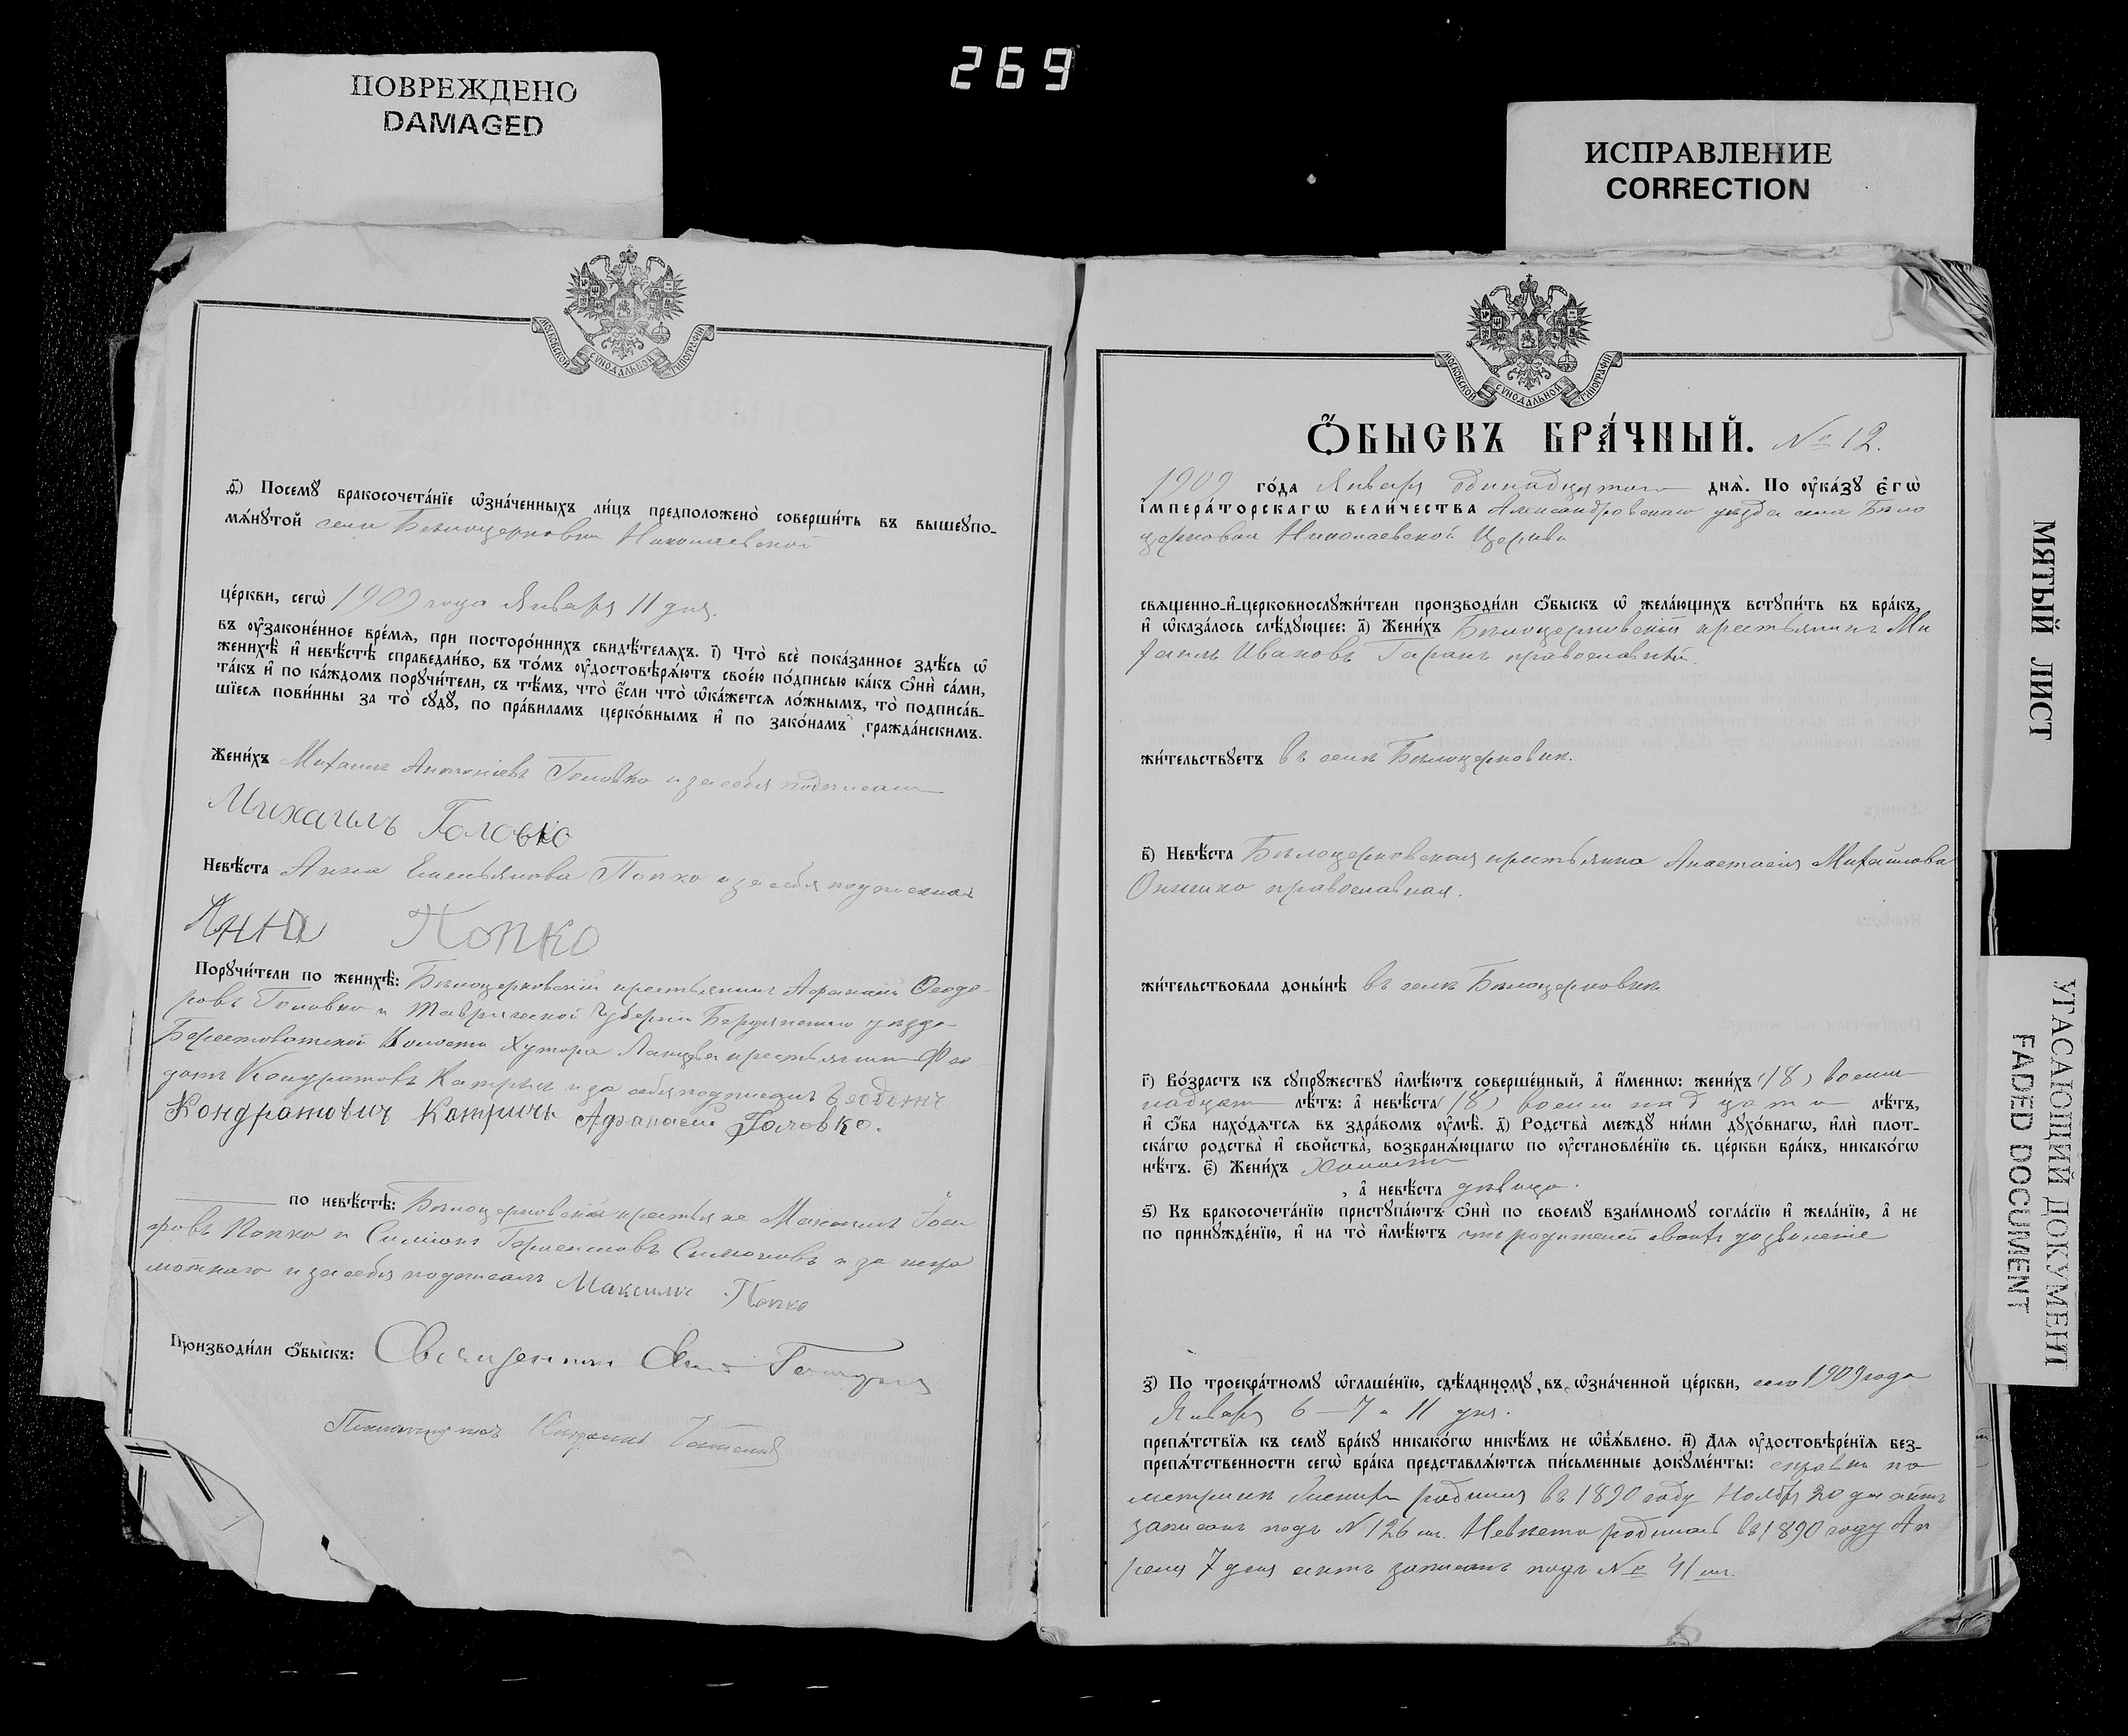 269
ПОВРЕЖДЕНО
DAMAGED
ИСПРАВЛЕНИЕ
CORRECTION
МОСКОВСКОЙ СѴНОДАЛЬНОЙ ТИПОГРАФІИ
д҃і) Посемꙋ̀ бракосочета́нїе ѡ҆зна́ченныхъ ли́цъ предположено̀ соверши́ть въ вышеꙋпо-
мѧ́нꙋтой села Бѣлоцерковки Николаевской
це́ркви, сегѡ̀ 1909 года Января 11 дня.
въ ᲂу҆зако́ненное вре́мѧ, при посторо́ннихъ свидѣ́телѧхъ. і҃) Что̀ всѐ пока́занное здѣ́сь ѡ҆
женихѣ̀ и҆ невѣ́стѣ справедли́во, въ то́мъ ᲂу҆достовѣрѧ́ютъ свое́ю по́дписью ка́къ ѻ҆нѝ са́ми,
та́къ и҆ по ка́ждомъ порꙋчи́тели, съ тѣ́мъ, что̀ є҆́сли что̀ ѡ҆ка́жетсѧ ло́жнымъ, то̀ подписа́в-
шїесѧ пови́нны за то̀ сꙋдꙋ̀, по пра́виламъ церко́внымъ и҆ по зако́намъ гражда́нскимъ.
Жени́хъ Михаилъ Антоніевъ Головко и за себя подписалъ
Михаилъ Головко
Невѣ́ста Анна Емельянова Попко и за себя подписала
Анна Попко
Порꙋчи́тели по женихѣ̀: Бѣлоцерковскій крестьянинъ Афанасій Ѳеодо-
ровъ Головко и Таврической Губерніи Бердянскаго уѣзда
Берестоватской Волости Хутора крестьянинъ Фео
дотъ Кондратовъ Катричъ и за себя подписались Ѳеодотъ
Кондратовичъ Катричъ Афанасій Головко.
по невѣ́стѣ: Бѣлоцерковскіе крестьяне Максимъ
ровъ Попко и Симіонъ Герасимовъ и за негра
мотнаго и за себя подписалъ Максимъ Попко
Производи́ли ѻ҆́быскъ: Священникъ
Псаломщикъ
Ѻ҆́быскъ бра́чный. № 12.
1909 го́да Января Одинадцятого днѧ̀. По ᲂу҆ка́зꙋ є҆гѡ̀
і҆мпера́торскагѡ вели́чества Александровскаго уѣзда села Бѣло
церковки Николаевской Церкви
свѧще́нно-и҆-церковнослꙋжи́тели производи́ли ѻ҆́быскъ ѡ҆ жела́ющихъ встꙋпи́ть въ бра́къ,
и҆ ѡ҆каза́лось слѣ́дꙋющее: а҃) Жени́хъ Бѣлоцерковскій крестьянинъ Ми
хаилъ Ивановъ Гаранъ православный.
жи́тельствꙋетъ въ селѣ Бѣлоцерковки.
в҃) Невѣ́ста Бѣлоцерковская крестьянка Анастасія Михайлова
Онишко православная.
жи́тельствовала доны́нѣ въ селѣ Бѣлоцерковки
г҃) Во́зрастъ къ сꙋпрꙋ́жествꙋ и҆мѣ́ютъ соверше́нный, а҆ и҆́меннѡ: жени́хъ (18) восим
надцат лѣ́тъ: а҆ невѣ́ста (18) восим надцати лѣ́тъ,
и҆ ѻ҆́ба нахо́дѧтсѧ въ здра́вомъ ᲂу҆мѣ̀. д҃) Родства̀ междꙋ ни́ми дꙋхо́внагѡ, и҆лѝ плот-
ска́гѡ родства̀ и҆ сво́йства, возбранѧ́ющагѡ по ᲂу҆становле́нїю св. це́ркви бра́къ, никако́гѡ
нѣ́тъ. є҃) Жени́хъ Холостъ
, а҆ невѣ́ста дѣвица.
ѕ҃) Къ бракосочета́нїю пристꙋпа́ютъ ѻ҆нѝ по своемꙋ̀ взаи́мномꙋ согла́сїю и҆ жела́нїю, а҆ не
по принꙋжде́нїю, и҆ на то̀ и҆мѣ́ютъ отъ родителей своихъ дозволеніе
з҃) По троекра́тномꙋ ѡ҆глаше́нїю, сдѣ́ланномꙋ въ ѡ҆зна́ченной це́ркви, сего 1909 года
Января 6 — 7 и 11 дня.
препѧ́тствїѧ къ семꙋ̀ бра́кꙋ никако́гѡ никѣ́мъ не ѡ҆б̾ѧ́влено. и҃) Длѧ ᲂу҆достовѣре́нїѧ без-
препѧ́тственности сегѡ̀ бра́ка представлѧ́ютсѧ пи́сьменные докꙋме́нты: справки по
метрикѣ Женихъ родился въ 1890 году Ноября 20 дня актъ
записанъ подъ № 126 мъ. Невѣста родилась въ 1890 году Ап
реля 7 дня актъ записанъ подъ № 41 мъ.
МЯТЫЙ ЛИСТ
УГАСАЮЩИЙ ДОКУМЕНТ
FADED DOCUMENT